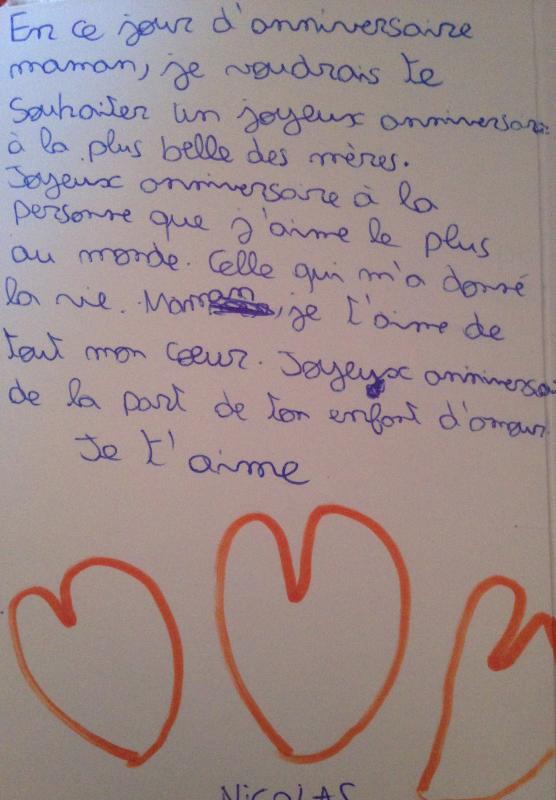 En ce jour d'anniversaire
maman, je voudrais te
souhaiter un joyeux anniversai
à la plus belle des mères.
Joyeux anniversaire à la
personne que j'aime le plus
au monde. Celle qui m'a donné
la vie. Maman, je t'aime de
tout mon coeur. Joyeux anniversa
de la part de ton enfant d'amour
Je t'aime
NICOLAS